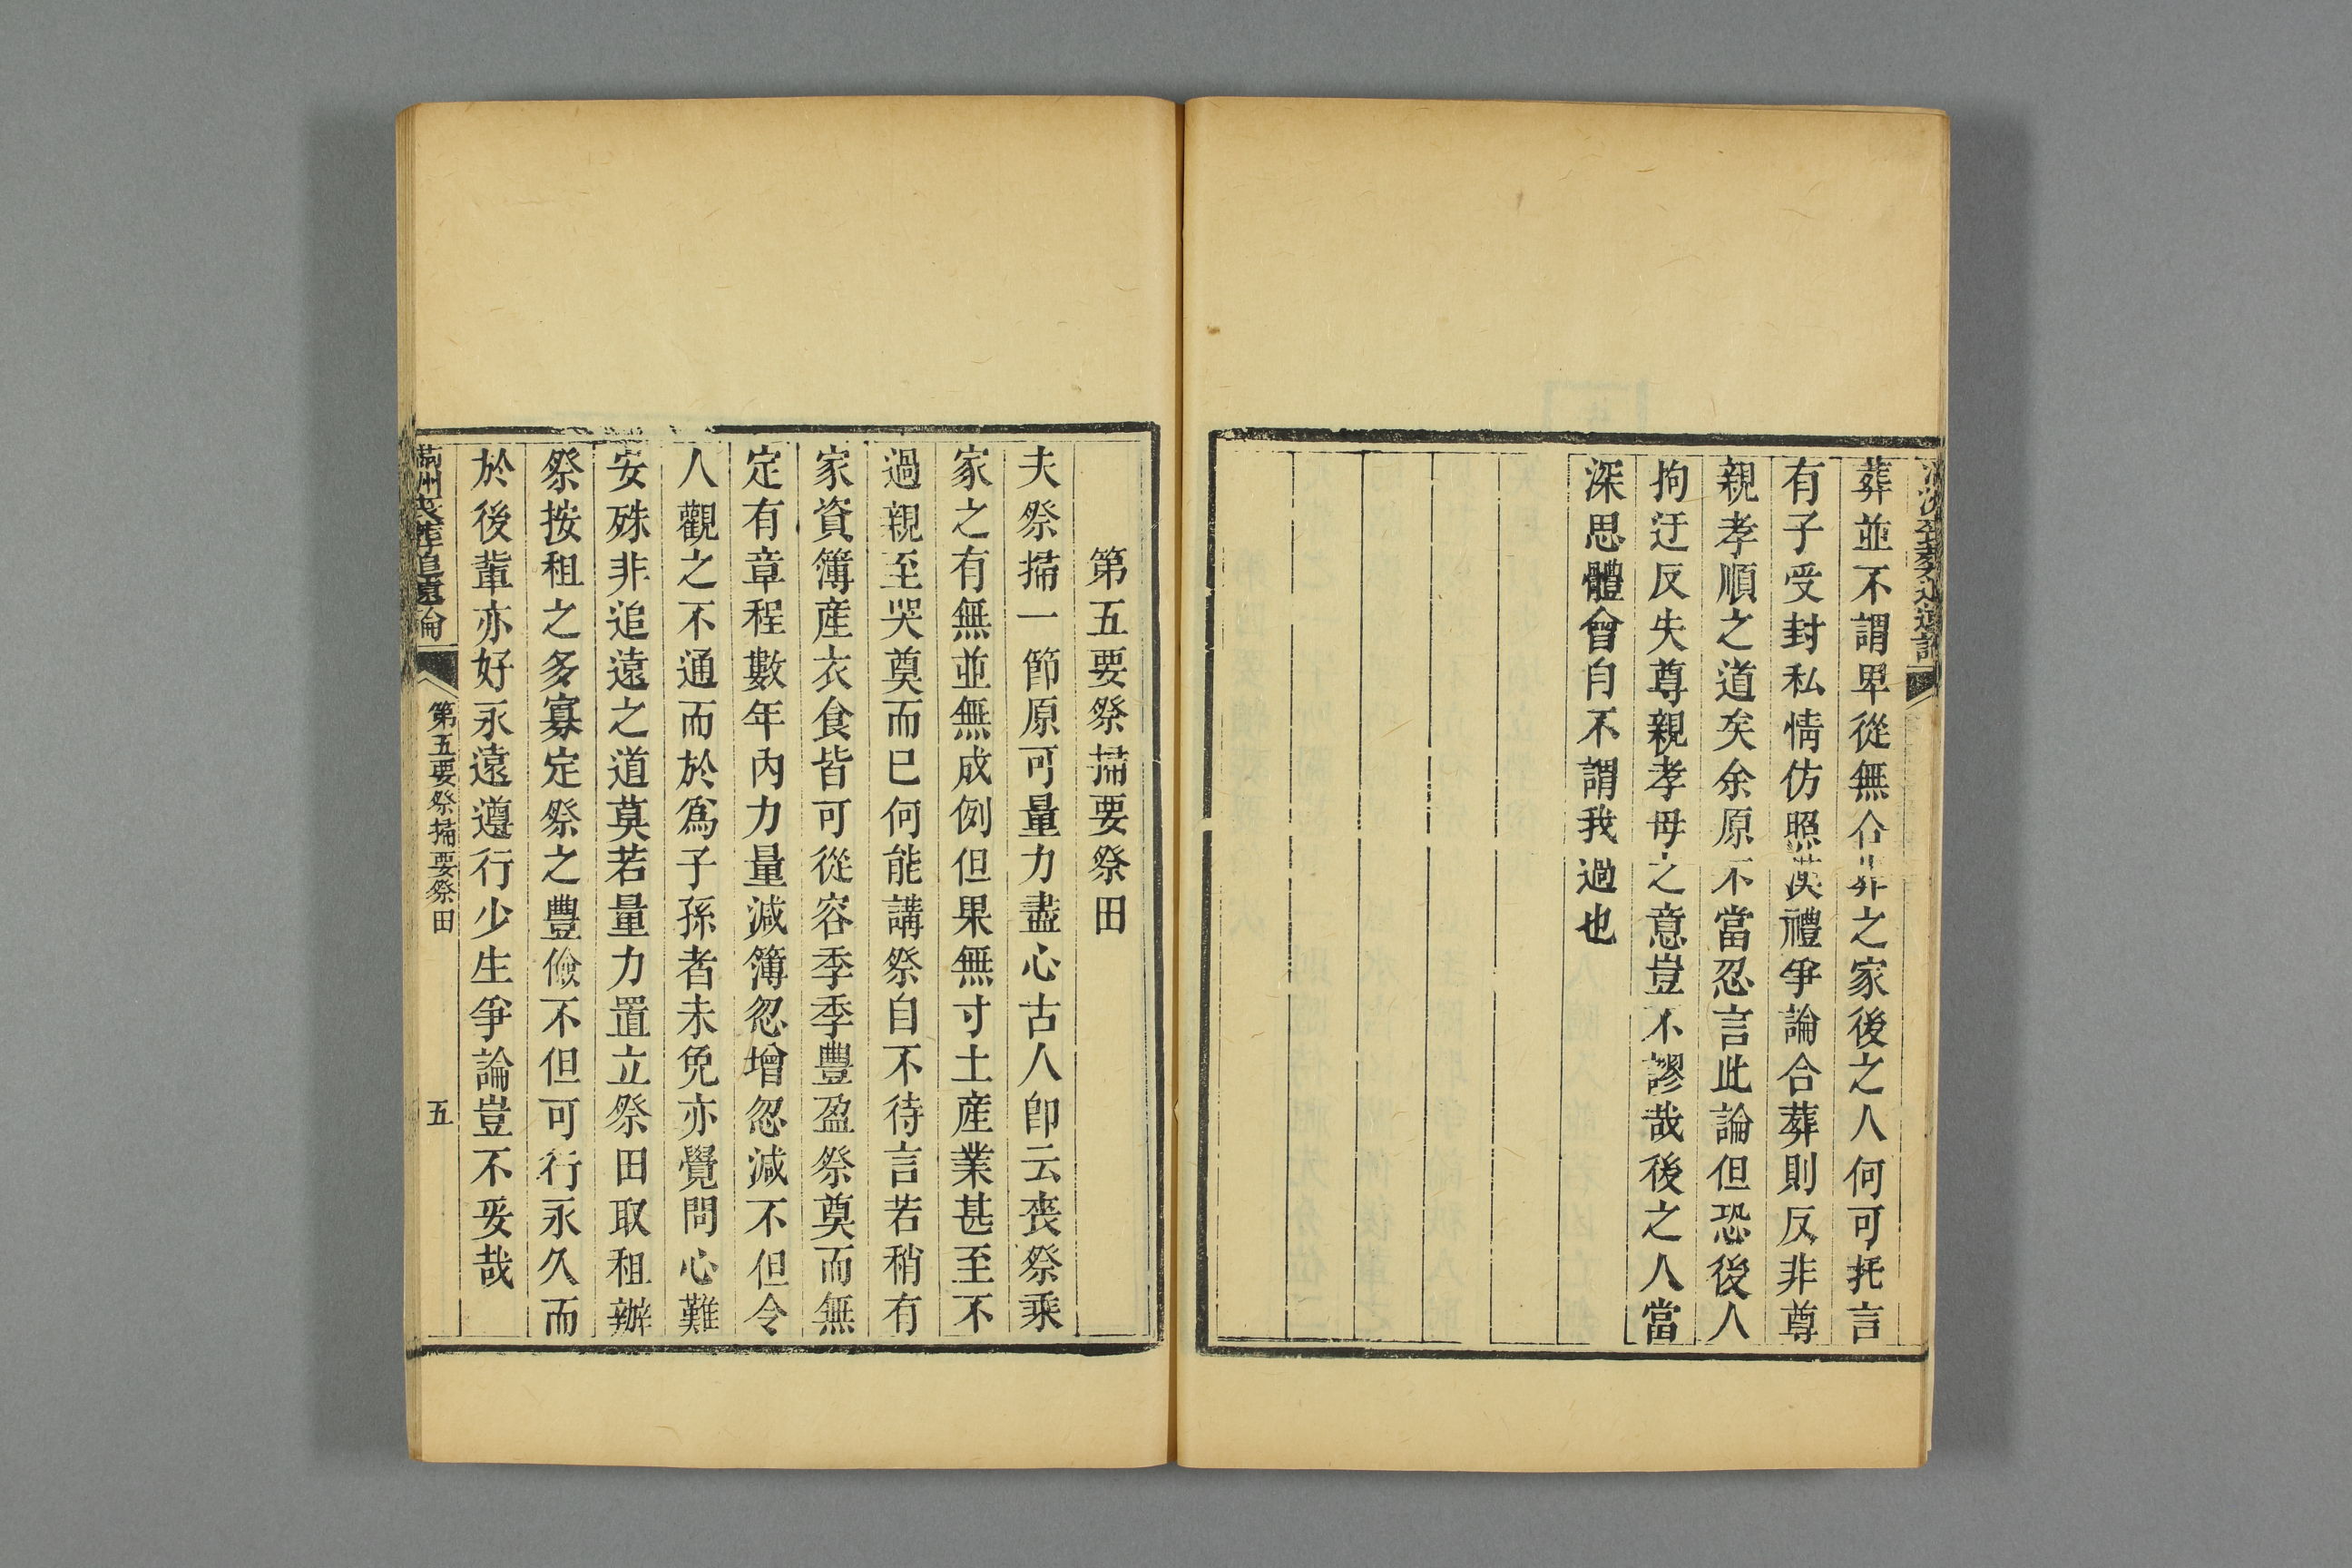 葬並不謂卑從無合葬之家後之人何可托言
有子受封私情仿照漢禮爭論合葬則反非尊
親孝順之道矣余原不當忍言此論但恐後人
拘迂反失尊親孝母之意豈不謬哉後之人當
深思體會自不謂我過也
第五要祭掃要祭田
夫祭掃一節原可量力盡心古人卽云喪祭乘
家之有無並無成例但果無寸土產業甚至不
過親至哭奠而已何能講祭自不待言若稍有
家資簿産衣食皆可從容季季豐盈祭奠而無
定有章程數年內力量減簿忽增忽減不但令
人觀之不通而於爲子孫者未免亦覺問心難
安殊非追遠之道莫若量力置立祭田取租辦
祭按租之多寡定祭之豐儉不但可行永久而
於後輩亦好永遠遵行少生爭論豈不妥哉
滿洲喪葬追遠論
第五要祭掃要祭田
五